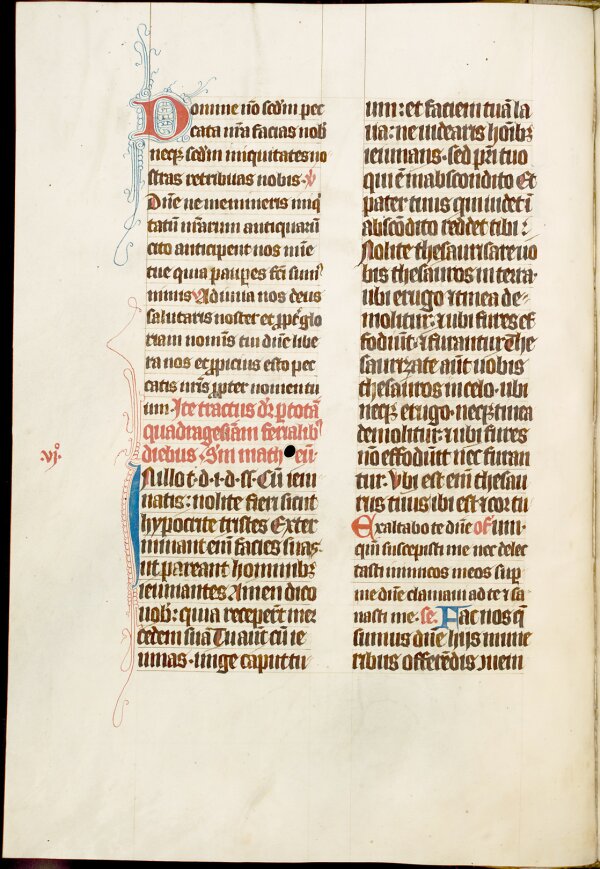 Domine nō scdm̄ pec
cata nr̄a facias nob̄
neqꝫ scdm̄ iniquitates no
stras retribuas nobis· v̄
Dn̄e ne memineris iniq
tatū nr̄arum antiquarū
cito anticipent nos mīe
tue quia paupes fc̄i sum9
nimis Adiuua nos deus
salutaris noster et ꝓpt̄ glo
riam nominis tui dn̄e libe
ra nos et ꝓpicius esto pec
catis nr̄is ꝓpter nomen tu
um· Iste tractus dr̄ ꝑ totā
quadragesiām ferialib9
diebus· Sm̄ matheū·
vjº.
In illo t· d· i· d· sꝰ· Cū ieiu
natis: nolite fieri sicut
hypocrite tristes Exter
minant em̄ facies suas·
ut pareant hominibꝫ
ieiunantes Amen dico
uob̄: quia recepeꝛt mer
cedem suā Tu aut̄ cū ie
iunas· unge caput tu
um: et faciem tuā la
ua: ne uidearis hōibꝫ
ieiunans· sed pr̄i tuo
qui ē in abscondito Et
pater tuus qui uidet ī
abscōdito reddet tibi:
Nolite thesaurisare uo
bis thesauros in terra·
ubi erugo ⁊ tinea de=
molitur: ⁊ ubi fures ef
fodiūt· ⁊ furantur The
saurizate aūt uobis
thesauros in celo· ubi
neqꝫ erugo· neqꝫ tinea
demolitur· ⁊ ubi fures
nō effodiūt nec furan
tur· Ubi est em̄ thesau
rus tuus ibi est ⁊ cor tu
Exaltabo te dn̄e of̄ um·
qm̄ suscepisti me nec delec
tasti inimicos meos sup
me dn̄e clamaui ad te ⁊ sa
nasti me· se· Fac nos q̄
sumus dn̄e hijs mune
ribus offerēdis ↄueni